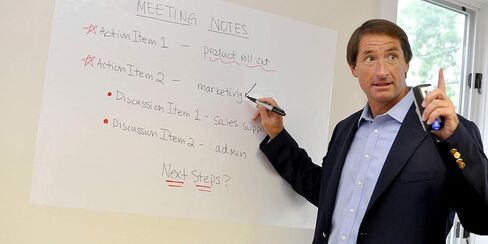 MEETING NOTES
Action Item 1 - product roll out
Action Item 2 - marketing
Discussion Item 1 - Sales suppo
Discussion Item 2 - admin
Next Steps?